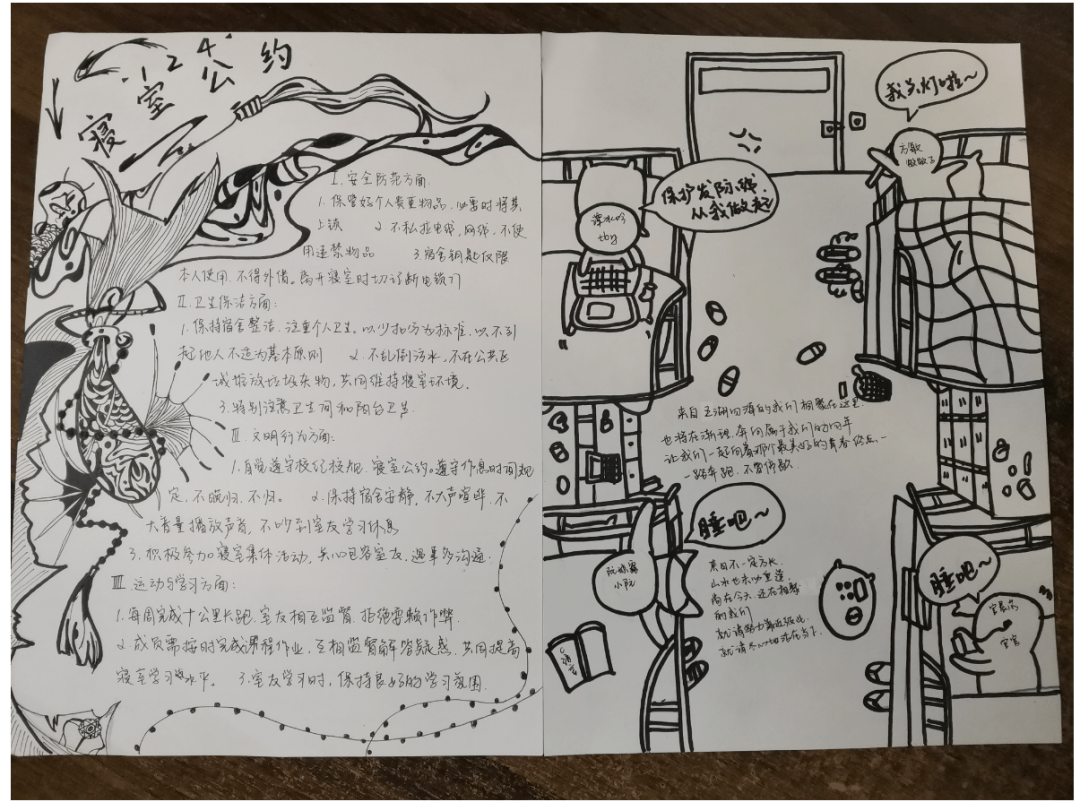 124
寝室公约
I. 安全防范方面:
1. 保管好个人贵重物品, 必要时将其
上锁 2. 不私拉电线, 网线, 不使
用违禁物品 3. 宿舍钥匙仅限
本人使用, 不得外借。离开寝室时切记断电锁门
II. 卫生保洁方面:
1. 保持宿舍整洁, 注重个人卫生。以少扣分为标准, 以不引
起他人不适为基本原则 2. 不乱倒污水, 不在公共区
域堆放垃圾杂物, 共同维持寝室环境.
3. 特别注意卫生间和阳台卫生.
III. 文明行为方面:
1. 自觉遵守校纪校规、寝室公约。遵守作息时间规
定, 不晚归、不归。 2. 保持宿舍安静, 不大声喧哗, 不
大音量播放声音, 不吵到室友学习休息
3. 积极参加寝室集体活动, 关心包容室友, 遇事多沟通.
IIII. 运动与学习方面:
1. 每周完成十公里长跑, 室友相互监督, 拒绝耍赖作弊.
2. 成员需按时完成课程作业, 互相监督解答疑惑, 共同提高
寝室学习水平。 3. 室友学习时, 保持良好的学习氛围.
我关灯啦~
方敏
敏敏子
保护发际线,
从我做起
tby
来自五湖四海的我们相聚在这里.
也将在渐理, 奔向属于我们的四年
让我们一起向着那个最美好的青春你后、
一路奔跑, 不曾停歇.
睡吧~
小阮
来日不一定方长,
山水也未必重逢.
尚在今天, 还在相聚
的我们
就请努力靠近彼此.
就请尽力生活在当下.
睡吧~
C语言